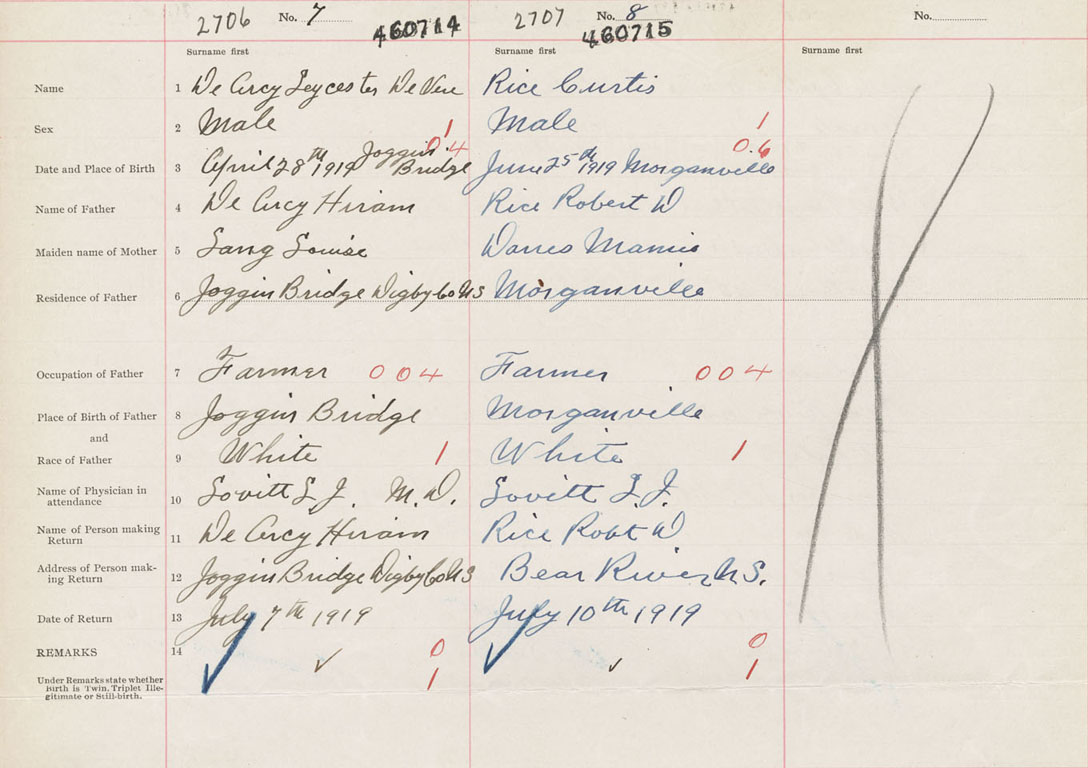 2706 No. 7 2707 No. 8 No.
460714 460715
Surname first Surname first Surname first
Name 1 De Arcy Leycester De Vere Rice Curtis
Sex 2 Male 1 Male 1
Date and Place of Birth 3 April 28th 1919 Joggin Bridge 0.4 June 25th 1919 Morganville 0.6
Name of Father 4 De Arcy Hiram Rice Robert W
Maiden name of Mother 5 Lang Louise Mamie
Residence of Father 6 Joggin Bridge Digby Co NS Morganville
Occupation of Father 7 Farmer 004 Farmer 004
Place of Birth of Father 8 Joggin Bridge Morganville
and
Race of Father 9 White 1 White 1
Name of Physician in
attendance 10 Lovitt L J. M.D. Lovitt L J.
Name of Person making
Return 11 De Arcy Hiram Rice Robt W
Address of Person mak-
ing Return 12 Joggin Bridge Digby Co NS Bear River N S.
Date of Return 13 July 7th 1919 July 10th 1919
REMARKS 14 0 0
Under Remarks state whether
Birth is Twin, Triplet Ille-
gitimate or Still-birth. 1 1